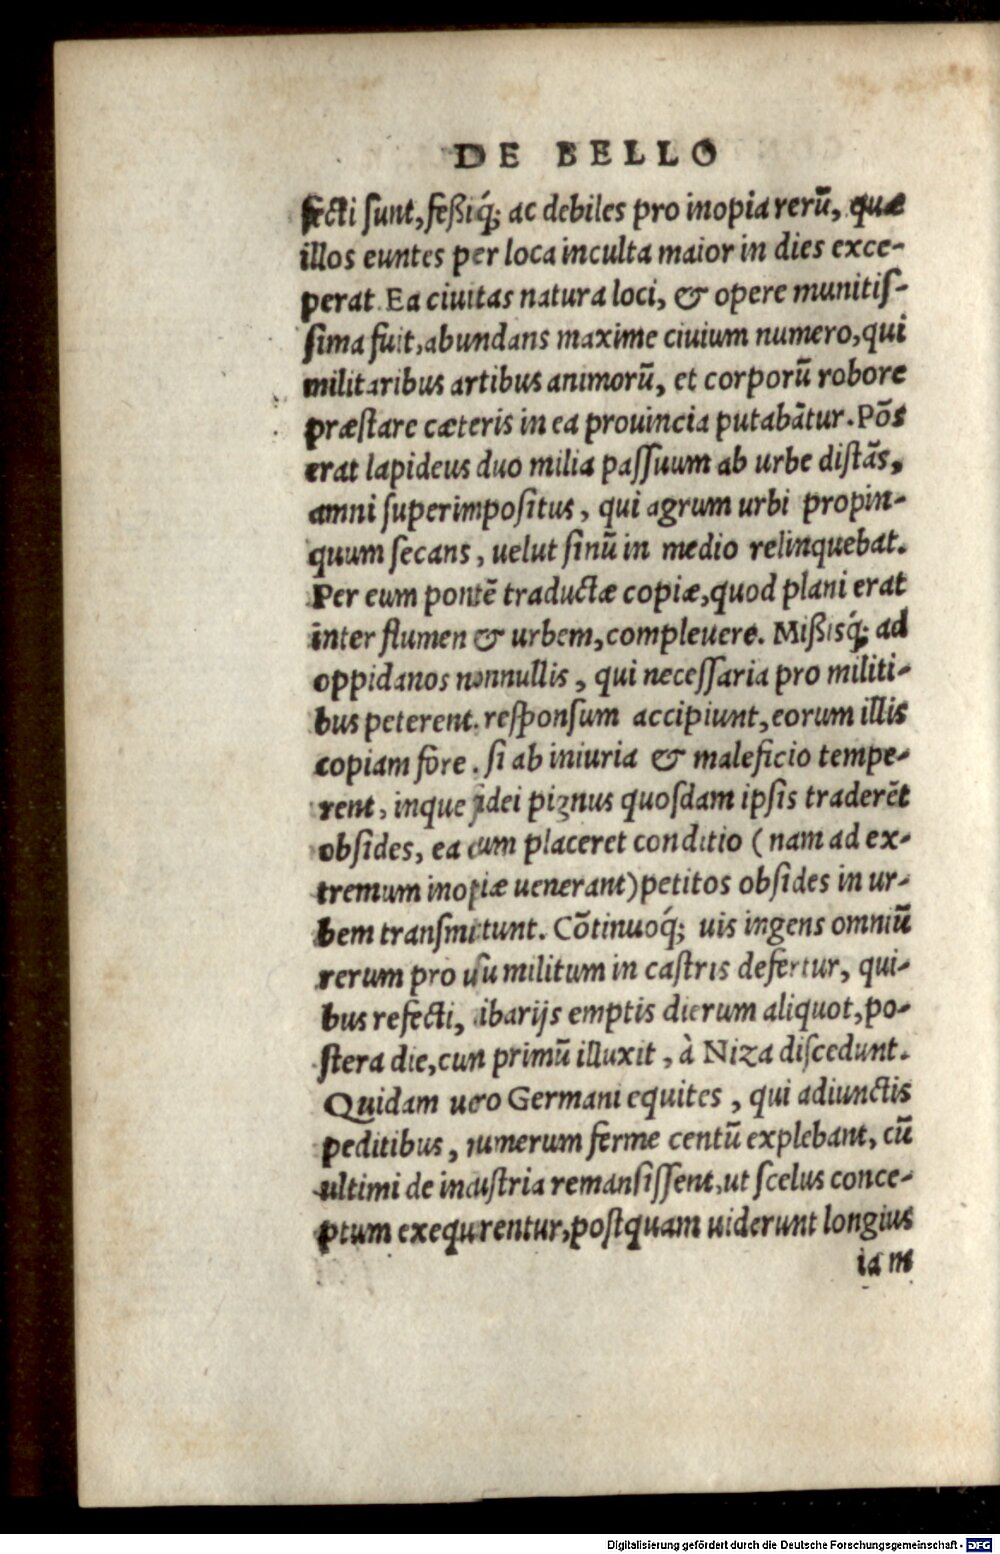 DE BELLO
fecti sunt, feßiq́; ac debiles pro inopia rerũ, quæ
illos euntes per loca inculta maior in dies exce-
perat. Ea ciuitas natura loci, & opere munitis-
sima fuit, abundans maxime ciuium numero, qui
militaribus artibus animorũ, et corporũ robore
præstare cæteris in ea prouincia putabãtur. Põs
erat lapideus duo milia passuum ab urbe distãs,
amni superimpositus, qui agrum urbi propin-
quum secans, uelut sinũ in medio relinquebat.
Per eum pontẽ traductæ copiæ, quod plani erat
inter flumen & urbem, compleuere. Mißisq́; ad
oppidanos nonnullis, qui necessaria pro militi-
bus peterent. responsum accipiunt, eorum illis
copiam fore. si ab iniuria & maleficio tempe-
rent, inque fidei pignus quosdam ipsis traderẽt
obsides, ea cum placeret conditio (nam ad ex-
tremum inopiæ uenerant) petitos obsides in ur-
bem transmittunt. Cõtinuoq́; uis ingens omniũ
rerum pro usu militum in castris defertur, qui-
bus refecti, cibarijs emptis dierum aliquot, po-
stera die, cun primũ illuxit, à Niza discedunt.
Quidam uero Germani equites, qui adiunctis
peditibus, numerum ferme centũ explebant, cũ
ultimi de industria remansissent, ut scelus conce-
ptum exequrentur, postquam uiderunt longius
iam
Digitalisierung gefördert durch die Deutsche Forschungsgemeinschaft - DFG